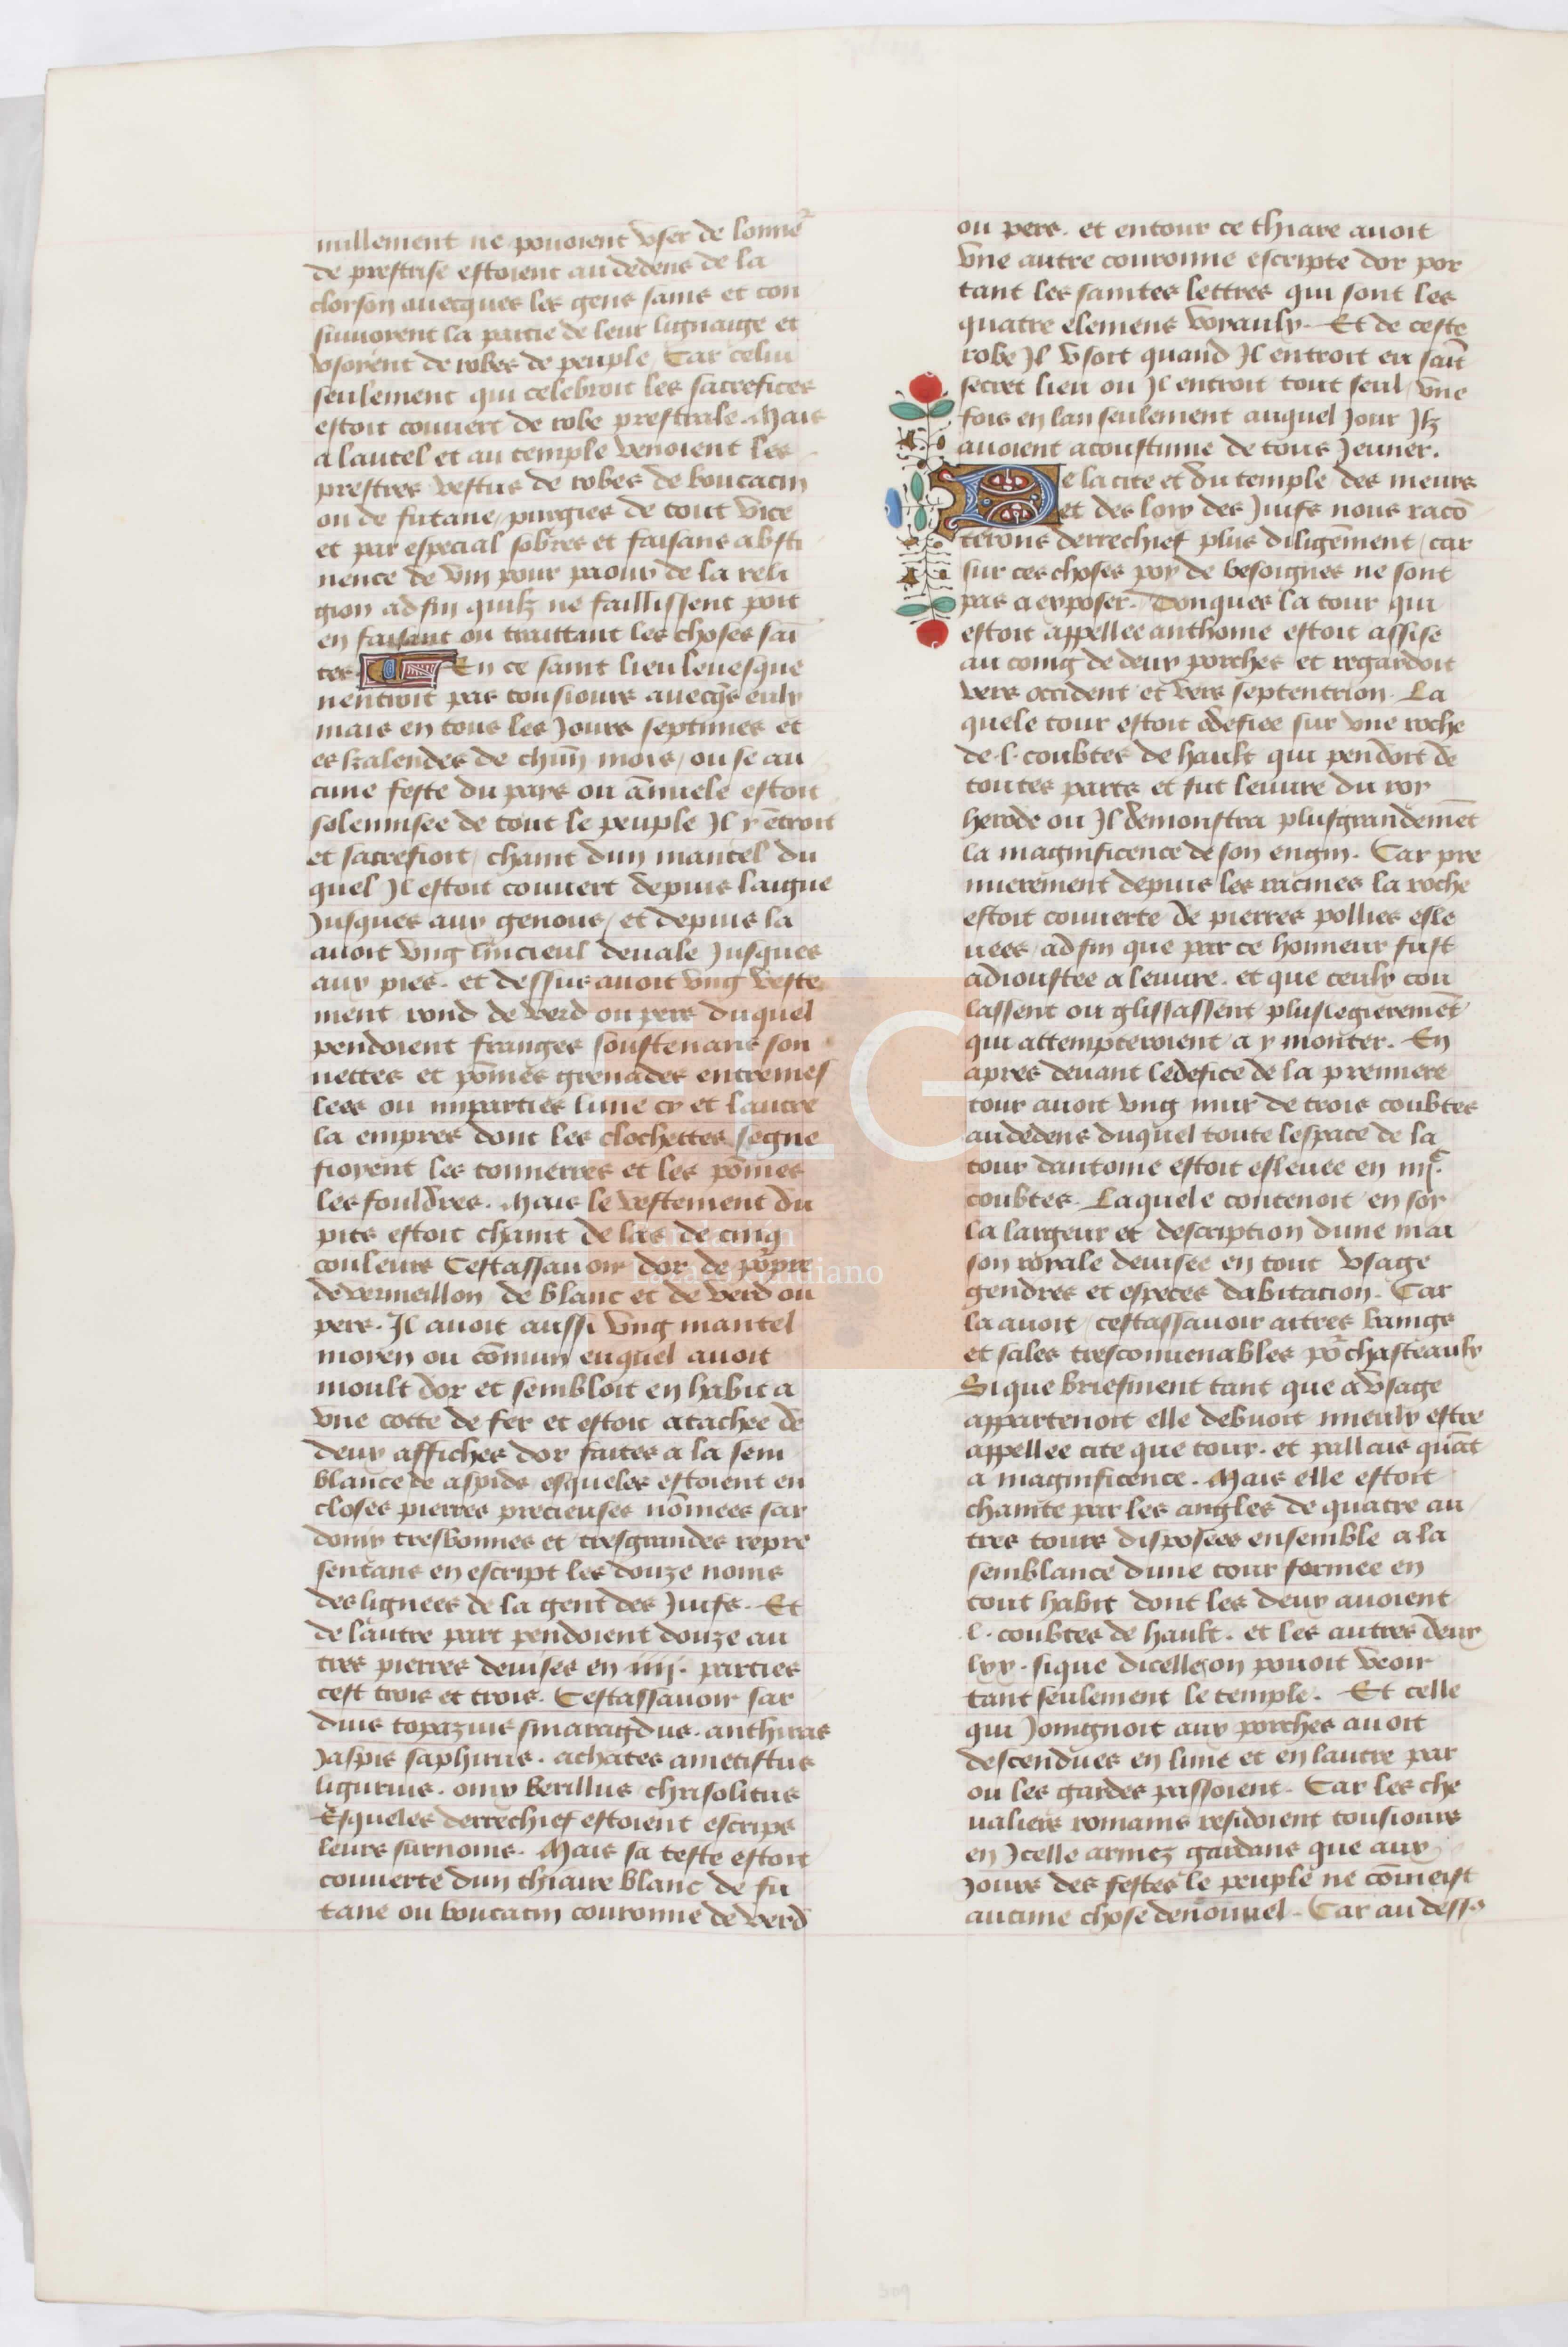 nullement ne pouoient vser de lonne᷑
de prestrise estoient audedens de la
clorson auecques les gens sains et con
suiuoient la partie de leur lignaige et
vsoient de robes de peuple Car celui
seulement qui celebroit les sacrefices
estoit couuert de robe prestrale. Mais
a lautel et au temple venoient les
prestres vestus de robes de boucacin
ou de futane, purgies de tout vice
et par especial sobres et faisans absti
nence de vin pour paour de la reli
gion adfin quilz ne faillissent poit
en faisant ou traittant les choses sai
tes En ce saint lieu leuesque
nentroit pas tousiours auecqs eulx
mais en tous les Jours septimes et
es kalendes de chūn mois, ou se au
cune feste du pays ou ānuele estoit
solennisee de tout le peuple Il y ētroit
et sacrefioit, chaint dun mantel du
quel Il estoit couuert depuis laigue
Jusques aux genous, et depuis la
auoit vng lincieul deuale Jusques
aux pies. et dessus auoit vng veste
ment rond de verd ou pers duquel
pendoient franges soustenans son
nettes et pōmes grenades entremes
lees ou imparties lune cy et lautre
la empres dont les clochettes segne
fioyent les tonnerres et les pōmes
les fouldres. Mais le vestement du
pits estoit chaint de las de cinq
couleurs Cestassauoir dor de po᷑pre
de vermeillon de blanc et de verd ou
pers. Il auoit aussi vng mantel
moyen ou cōmun euquel auoit
moult dor et sembloit en habit a
vne cotte de fer et estoit atachee de
deux affiches dor faites a la sem
blance de aspids esqueles estoient en
closes pierres precieuses nōmees sar
donix tresbonnes et tresgrandes repre
sentans en escript les douze noms
des lignees de la gent des Juifs. Et
de lautre part pendoient douze au
tres pierres deuises en iiij. parties
cest trois et trois. Cestassauoir sar
dius topazius smaragdus. anthrax
Jaspis saphirus. achates ametistus
ligurius. onix Berillus chrisolitus
Esqueles derrechief estoient escrips
leurs surnoms. Mais sa teste estoit
couuerte dun thiaire blanc de fu
tane ou boucacin couronne de verd
ou pers. et entour ce thiare auoit
vne autre couronne escripte dor por
tant les saintes lettres qui sont les
quatre elemens vorauly. Et de ceste
robe Il vsoit quand Il entroit en sait̄
secret lieu ou Il entroit tout seul vne
fois en lan seulement auquel Jour Ilz
auoient acoustume de tous Jeuner.
De la cite et du temple des meurs
et des loix des Juifs nous racō
terons derrechief plus diligēment, car
sur ces choses poy de besoignes ne sont
pas a exposer. Donques la tour qui
estoit appellee anthoine estoit assise
au coing de deux porches et regardoit
vers occident et vers septentrion. La
quele tour estoit edefiee sur vne roche
de .l. coubtes de hault qui pendoit de
toutes parts et fut leuure du roy
herode ou Il demonstra plusgrandemēt
la magnificence de son engin. Car pre
mierement depuis les racines la roche
estoit couuerte de pierres pollies esle
uees, adfin que par ce honneur fust
adioustee a leuure. et que ceulx cou
lassent ou glissassent pluslegieremēt
qui attempteroient a y monter. En
apres deuant ledefice de la premiere
tour auoit vng mur de trois coubtes
audedens duquel toute lespace de la
tour dantoine estoit esleuee en iiijᶜ
coubtes. Laquele contenoit en soy
la largeur et description dune mai
son royale deuisee en tout vsage
gendres et especes dabitacion. Car
la auoit, cestassauoir aitres baings
et sales tresconuenables po᷑ chasteaulx
Si que briefment tant que a vsage
appartenoit elle debuoit mieulx estre
appellee cite que tour. et pallais quāt
a magnificence. Mais elle estoit
chainte par les angles de quatre au
tres tours disposees ensemble a la
semblance dune tour formee en
tout habit dont les deux auoient
.l. coubtes de hault. et les autres deux
lxx. sique dicelle on pouoit veoir
tant seulement le temple. Et celle
qui Joingnoit aux porches auoit
descendues en lune et en lautre par
ou les gardes passoient. Car les che
ualiers romains residoient tousiours
en Jcelle armez gardans que aux
Jours des festes le peuple ne cōmeist
aucune chose de nouuel. Car au dess9
309
LG
Fundación
Lázaro Galdiano